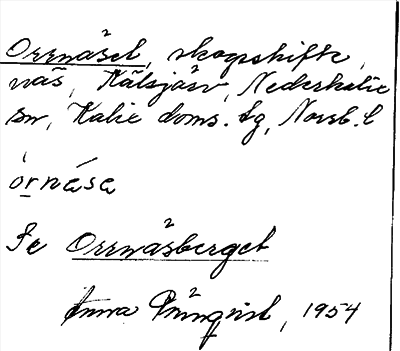 Orrnäset, skogsskifte,
näs, Kälsjärv, Nederkalix
sn, Kalix doms. lg, Norrb. l
òrnása
Se Orrnäsberget
Anna, 1954